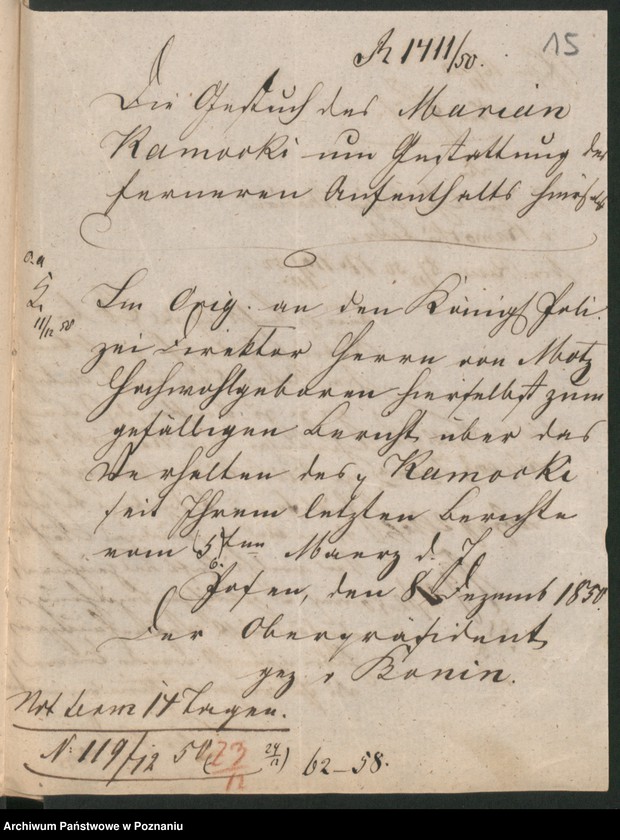 R 1411/50.
15
Die Gesuch des Marian
Kamocki um Gestattung des
ferneren Aufenthalts hieselbst
o. a
11/12 50
Im Orig. an den Königl Poli-
zei Direktor Herrn von Motz
Hochwohlgeboren hierselbst zum
gefälligen Bericht über das
Verhalten des p Kamocki
seit Ihrem letzten Berichte
vom 5ten Maerz d. J.
6.
Posen, den 8 Dezemb 1850
Der Oberpräsident
gez v Bonin.
Not 14 Tagen.
N: 119/12 50 23/12 24/12) 62–58.
Archiwum Państwowe w Poznaniu